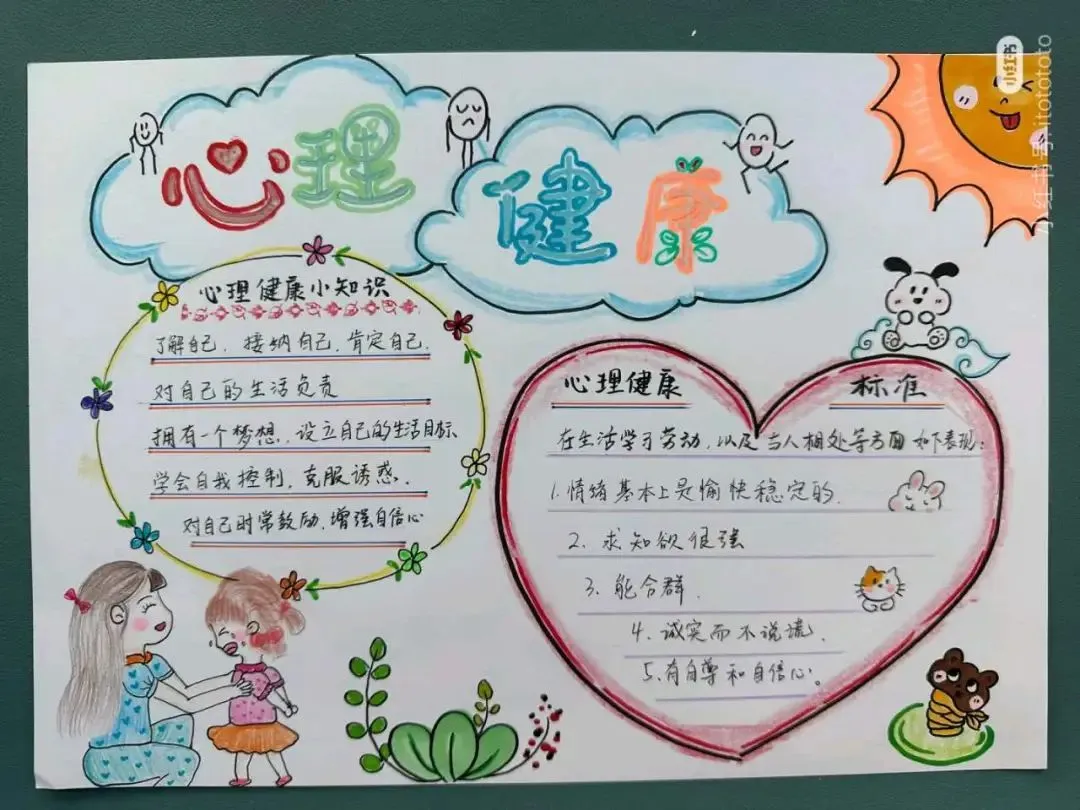 心理
健康
心理健康小知识
了解自己，接纳自己，肯定自己.
对自己的生活负责
拥有一个梦想，设立自己的生活目标
学会自我控制，克服诱惑.
对自己时常鼓励，增强自信心
心理健康 标准
在生活学习劳动，以及与人相处等方面如下表现：
1.情绪基本上是愉快稳定的.
2.求知欲很强
3.能合群.
4.诚实而不说谎.
5.有自尊和自信心。
小红书
小红书号:itotototo